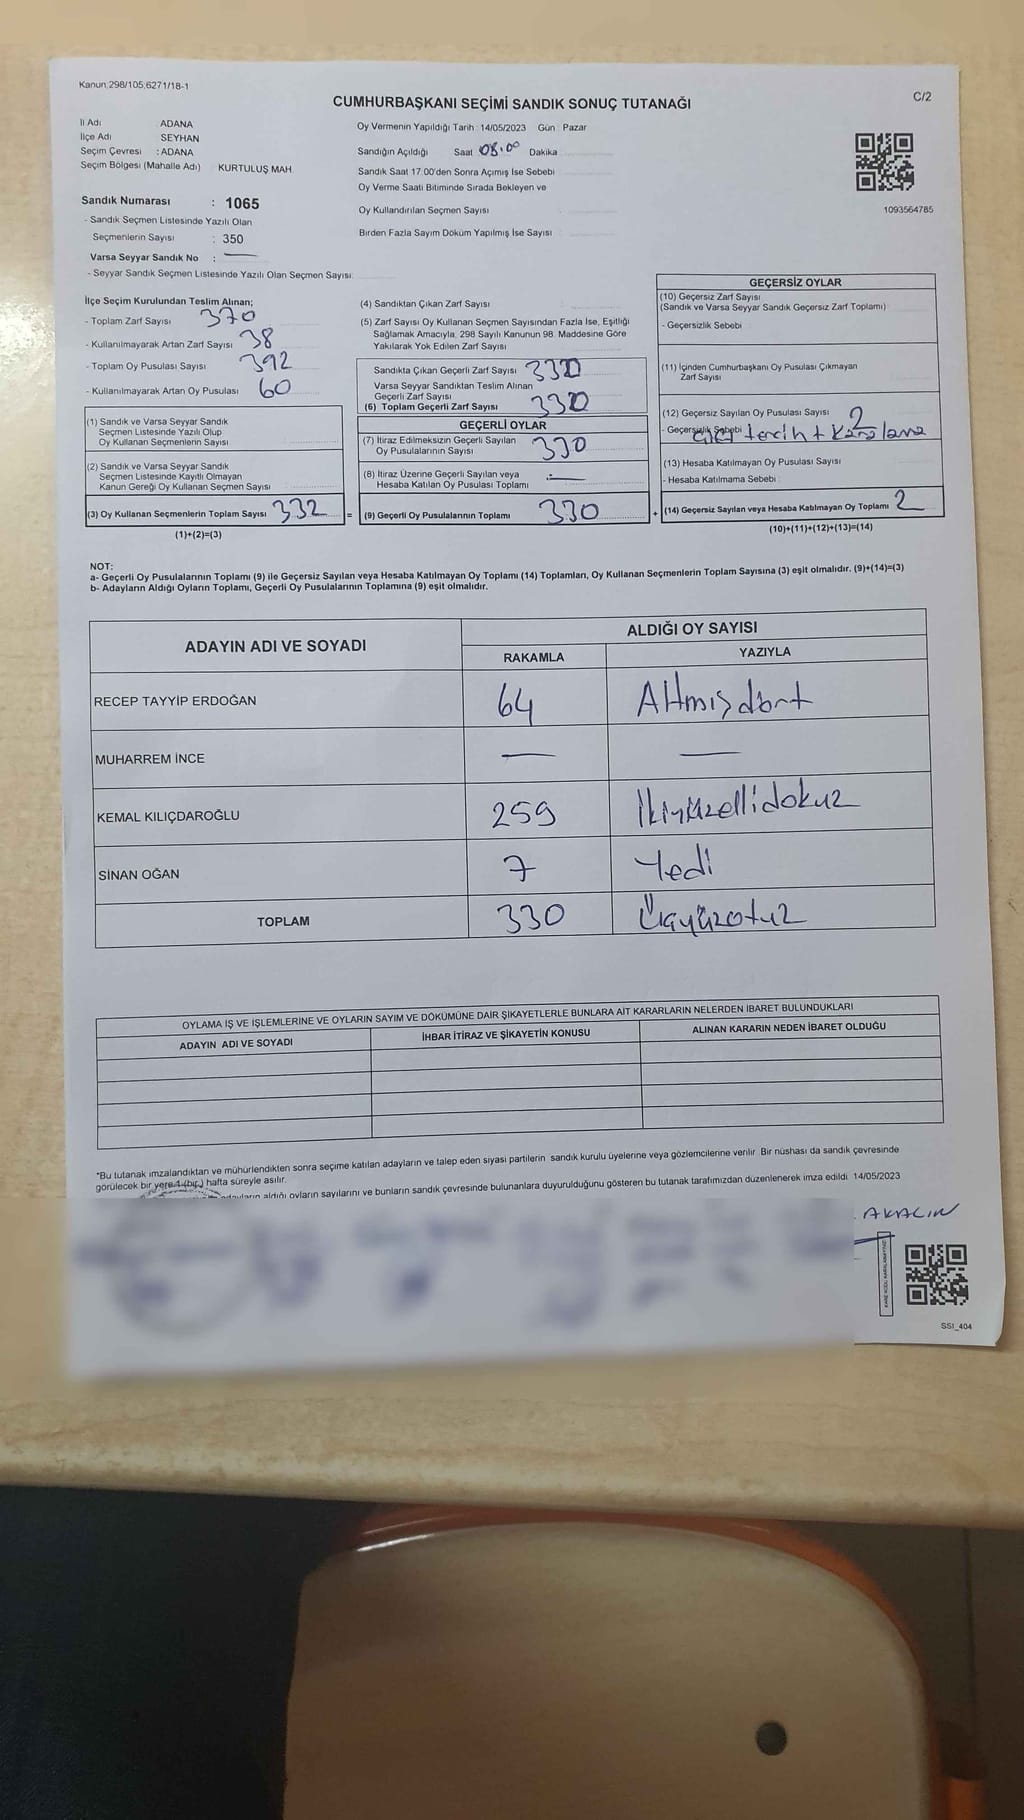 Kanun:298/105;6271/18-1
C/2
CUMHURBAŞKANI SEÇİMİ SANDIK SONUÇ TUTANAĞI
İl Adı ADANA
İlçe Adı SEYHAN
Seçim Çevresi : ADANA
Seçim Bölgesi (Mahalle Adı) KURTULUŞ MAH.
Sandık Numarası : 1065
- Sandık Seçmen Listesinde Yazılı Olan
Seçmenlerin Sayısı : 350
Varsa Seyyar Sandık No : —
- Seyyar Sandık Seçmen Listesinde Yazılı Olan Seçmen Sayısı:
Oy Vermenin Yapıldığı Tarih : 14/05/2023 Gün : Pazar
Sandığın Açıldığı Saat 08.00 Dakika
Sandık Saat 17.00'den Sonra Açımış İse Sebebi
Oy Verme Saati Bitiminde Sırada Bekleyen ve
Oy Kullandırılan Seçmen Sayısı
Birden Fazla Sayım Döküm Yapılmış İse Sayısı
1093564785
İlçe Seçim Kurulundan Teslim Alınan;
- Toplam Zarf Sayısı 370
- Kullanılmayarak Artan Zarf Sayısı 38
- Toplam Oy Pusulası Sayısı 392
- Kullanılmayarak Artan Oy Pusulası 60
(1) Sandık ve Varsa Seyyar Sandık
Seçmen Listesinde Yazılı Olup
Oy Kullanan Seçmenlerin Sayısı
(2) Sandık ve Varsa Seyyar Sandık
Seçmen Listesinde Kayıtlı Olmayan
Kanun Gereği Oy Kullanan Seçmen Sayısı
(3) Oy Kullanan Seçmenlerin Toplam Sayısı 332 =
(1)+(2)=(3)
(4) Sandıktan Çıkan Zarf Sayısı
(5) Zarf Sayısı Oy Kullanan Seçmen Sayısından Fazla İse, Eşitliği
Sağlamak Amacıyla, 298 Sayılı Kanunun 98. Maddesine Göre
Yakılarak Yok Edilen Zarf Sayısı
Sandıkta Çıkan Geçerli Zarf Sayısı
Varsa Seyyar Sandıktan Teslim Alınan
Geçerli Zarf Sayısı
(6) Toplam Geçerli Zarf Sayısı
GEÇERLİ OYLAR
(7) İtiraz Edilmeksizin Geçerli Sayılan
Oy Pusulalarının Sayısı 330
(8) İtiraz Üzerine Geçerli Sayılan veya
Hesaba Katılan Oy Pusulası Toplamı —
(9) Geçerli Oy Pusulalarının Toplamı 330 +
GEÇERSİZ OYLAR
(10) Geçersiz Zarf Sayısı
(Sandık ve Varsa Seyyar Sandık Geçersiz Zarf Toplamı)
- Geçersizlik Sebebi
(11) İçinden Cumhurbaşkanı Oy Pusulası Çıkmayan
Zarf Sayısı
(12) Geçersiz Sayılan Oy Pusulası Sayısı 2
- Geçersizlik Sebebi tercih + Karalama
(13) Hesaba Katılmayan Oy Pusulası Sayısı
- Hesaba Katılmama Sebebi
(14) Geçersiz Sayılan veya Hesaba Katılmayan Oy Toplamı 2
(10)+(11)+(12)+(13)=(14)
NOT:
a- Geçerli Oy Pusulalarının Toplamı (9) ile Geçersiz Sayılan veya Hesaba Katılmayan Oy Toplamı (14) Toplamları, Oy Kullanan Seçmenlerin Toplam Sayısına (3) eşit olmalıdır. (9)+(14)=(3)
b- Adayların Aldığı Oyların Toplamı, Geçerli Oy Pusulalarının Toplamına (9) eşit olmalıdır.
ADAYIN ADI VE SOYADI ALDIĞI OY SAYISI
RAKAMLA YAZIYLA
RECEP TAYYİP ERDOĞAN 64 Altmışdört
MUHARREM İNCE — —
KEMAL KILIÇDAROĞLU 259 İkiyüzellidokuz
SİNAN OĞAN 7 Yedi
TOPLAM 330 Üçyüzotuz
OYLAMA İŞ VE İŞLEMLERİNE VE OYLARIN SAYIM VE DÖKÜMÜNE DAİR ŞİKAYETLERLE BUNLARA AİT KARARLARIN NELERDEN İBARET BULUNDUKLARI
ADAYIN ADI VE SOYADI İHBAR İTİRAZ VE ŞİKAYETİN KONUSU ALINAN KARARIN NEDEN İBARET OLDUĞU
*Bu tutanak imzalandıktan ve mühürlendikten sonra seçime katılan adayların ve talep eden siyasi partilerin sandık kurulu üyelerine veya gözlemcilerine verilir. Bir nüshası da sandık çevresinde
görülecek bir yere 1 (bir) hafta süreyle asılır.
aldığı oyların sayılarını ve bunların sandık çevresinde bulunanlara duyurulduğunu gösteren bu tutanak tarafımızdan düzenlenerek imza edildi. 14/05/2023
AKALIN
SSI_404